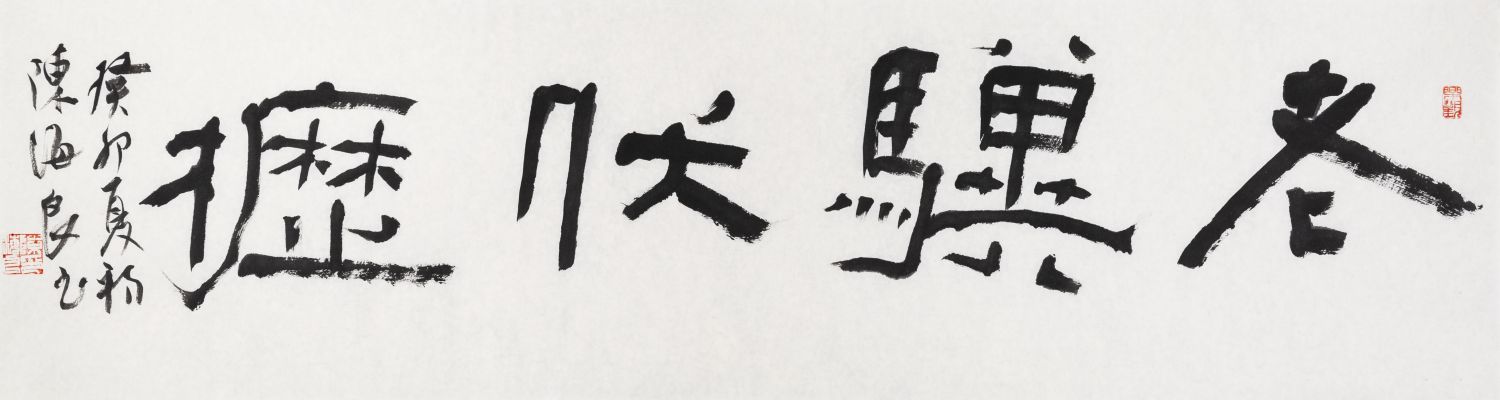 老驥伏櫪
癸卯夏初
陳海良书